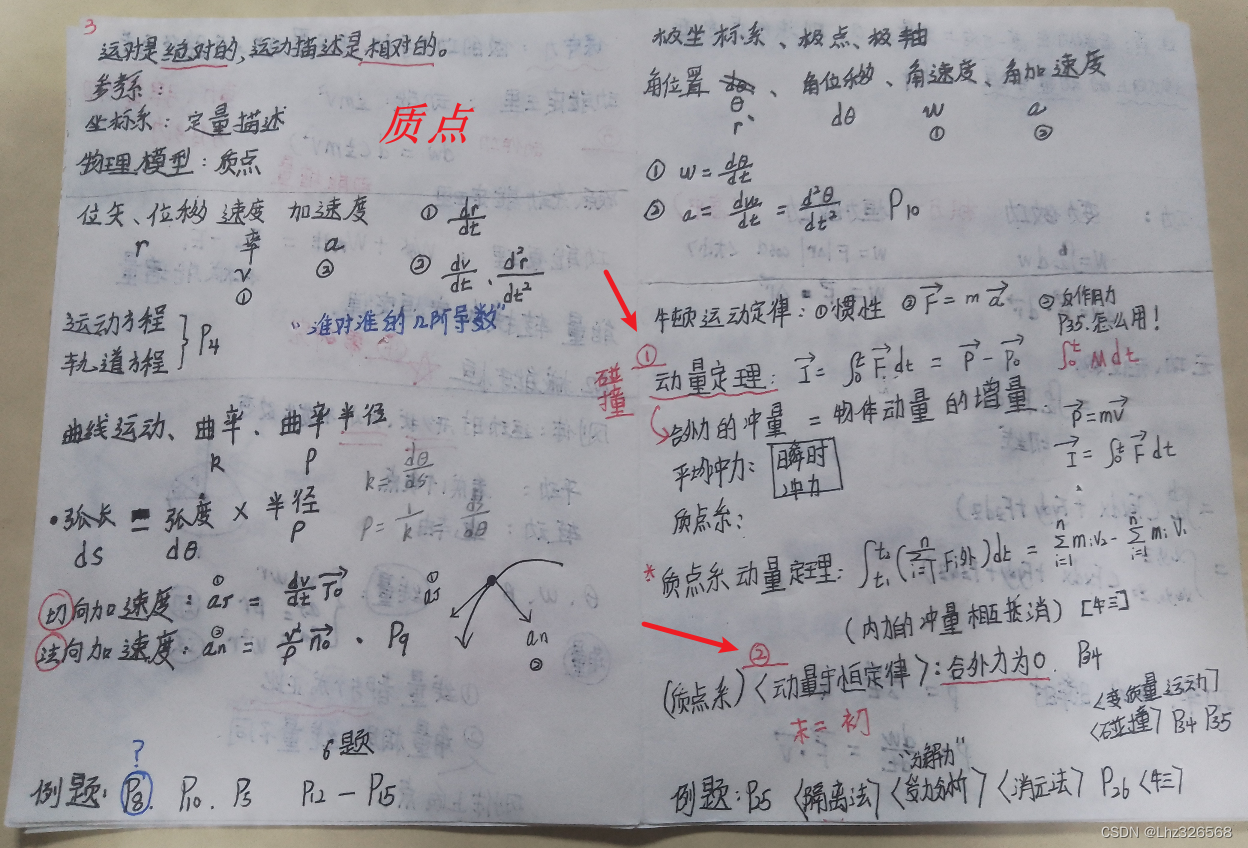 3
运对是绝对的,运动描述是相对的。
参考系:
坐标系:定量描述
质点
物理模型:质点
位矢、位移 速度 加速度
r 率 a
v ②
①
① dr/dt
② dv/dt、d²r/dt²
运动方程
轨道方程 } P4
"谁对谁的几阶导数"
曲线运动、曲率、曲率半径
k ρ
k = dθ/ds
ρ = 1/k = ds/dθ
·弧长 = 弧度 × 半径
ds dθ ρ
切向加速度:① aτ = dv/dt τ0
法向加速度:② an = v²/ρ n0 · P9
① aτ
an
②
? 6题
例题:P8. P10. P5 P12 — P15
极坐标系、极点、极轴
角位置 、角位移、角速度、角加速度
θ dθ w a
r ① ②
① w = dθ/dt
② a = dw/dt = d²θ/dt² P10
牛顿运动定律:①惯性 ②F = m a ③反作用力
P35.怎么用!
①
碰撞
动量定理:I = ∫₀ᵗ F dt = P - P₀ ∫₀ᵗ M dt
合外力的冲量 = 物体动量的增量
P = mv
平均冲力: 瞬时冲力
I = ∫₀ᵗ F dt
质点系:
*质点系动量定理:∫t₁ t₂ (∑ i=1 n Fi外)dt = ∑ i=1 n miv₂ - ∑ i=1 n mi V₁
(内力的冲量相互抵消) [牛三]
②
(质点系)〈动量守恒定律〉:合外力为0. P34
末 = 初
〈变质量运动〉
〈碰撞〉P34 P35
"分解力"
例题:P25 〈隔离法〉〈受力分析〉〈消元法〉 P26 〈牛三〉
CSDN @Lhz326568